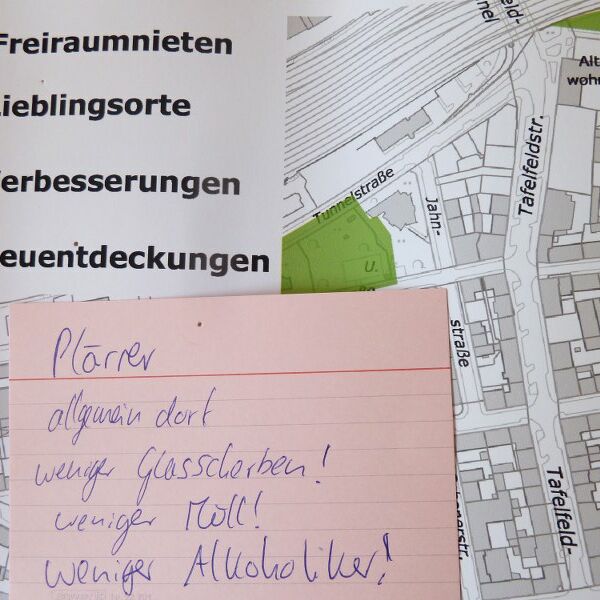 Freiraumnieten
ieblingsorte
erbesserungen
euentdeckungen
feld-
nel
Alt
wohn
Tafelfeldstr.
Tunnelstraße
Jahn-
U.
straße
Tafelfeld-
Plärrer
allgemein dort
weniger Glasscherben!
weniger Müll!
weniger Alkoholiker!